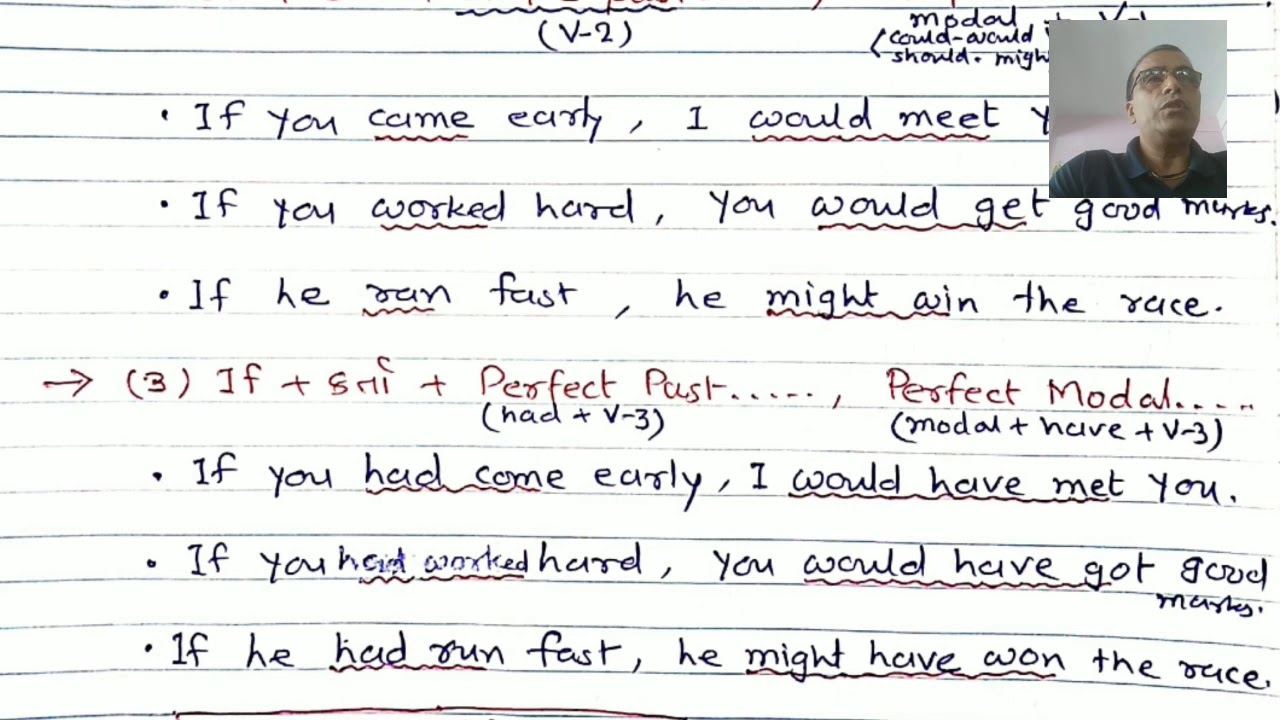 (V-2)
modal
(could-would
should. migh
• If you came early, I would meet
• If you worked hard, you would get good marks.
• If he ran fast, he might win the race.
→ (3) If + કર્તા + Perfect Past....., Perfect Modal.....
(had + V-3) (modal + have + V-3)
• If you had come early, I would have met you.
• If you had worked hard, you would have got good
marks.
• If he had run fast, he might have won the race.